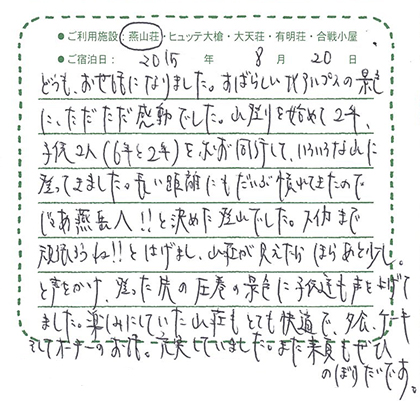 ●ご利用施設：燕山荘・ヒュッテ大槍・大天荘・有明荘・合戦小屋
●ご宿泊日： 2015 年 8 月 20 日
どうも、お世話になりました。すばらしい北アルプスの景色
に、ただただ感動でした。山登りを始めて2年、
子供2人（6年と2年）を 同行して、いろいろな山に
登ってきました。長い距離にもだいぶ慣れてきたので
じゃあ燕岳へ!!と決めた登山でした。 まで
頑張ろうね!!とはげまし、山荘が見えたら ほらあと少し。
と声をかけ、登った先の圧巻の景色に子供達も声をあげて
ました。楽しみにしていた山荘もとても快適で、夕食、ケーキ
そしてオーナーのお話。充実していました。また来夏もぜひ
のぼりたいです。